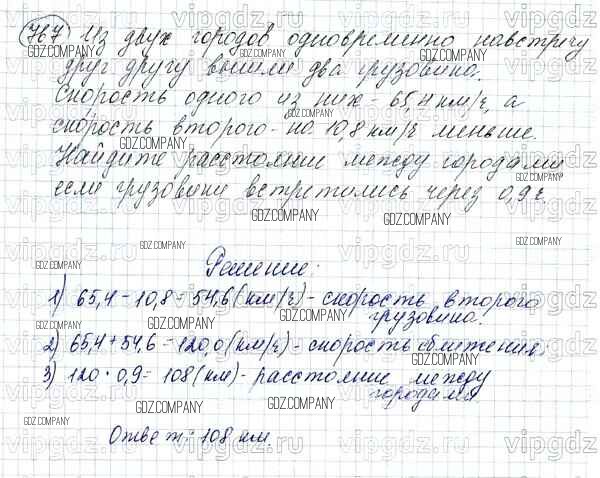 767 Из двух городов одновременно навстречу
друг другу вышли два грузовика.
Скорость одного из них - 65,4 км/ч, а
скорость второго - на 10,8 км/ч меньше.
Найдите расстояние между городами
если грузовики встретились через 0,9 ч.
Решение:
1) 65,4 - 10,8 = 54,6 (км/ч) - скорость второго
грузовика.
2) 65,4 + 54,6 = 120,0 (км/ч) - скорость сближения
3) 120 · 0,9 = 108 (км) - расстояние между
городами
Ответ: 108 км
vipgdz.ru
GDZ.COMPANY